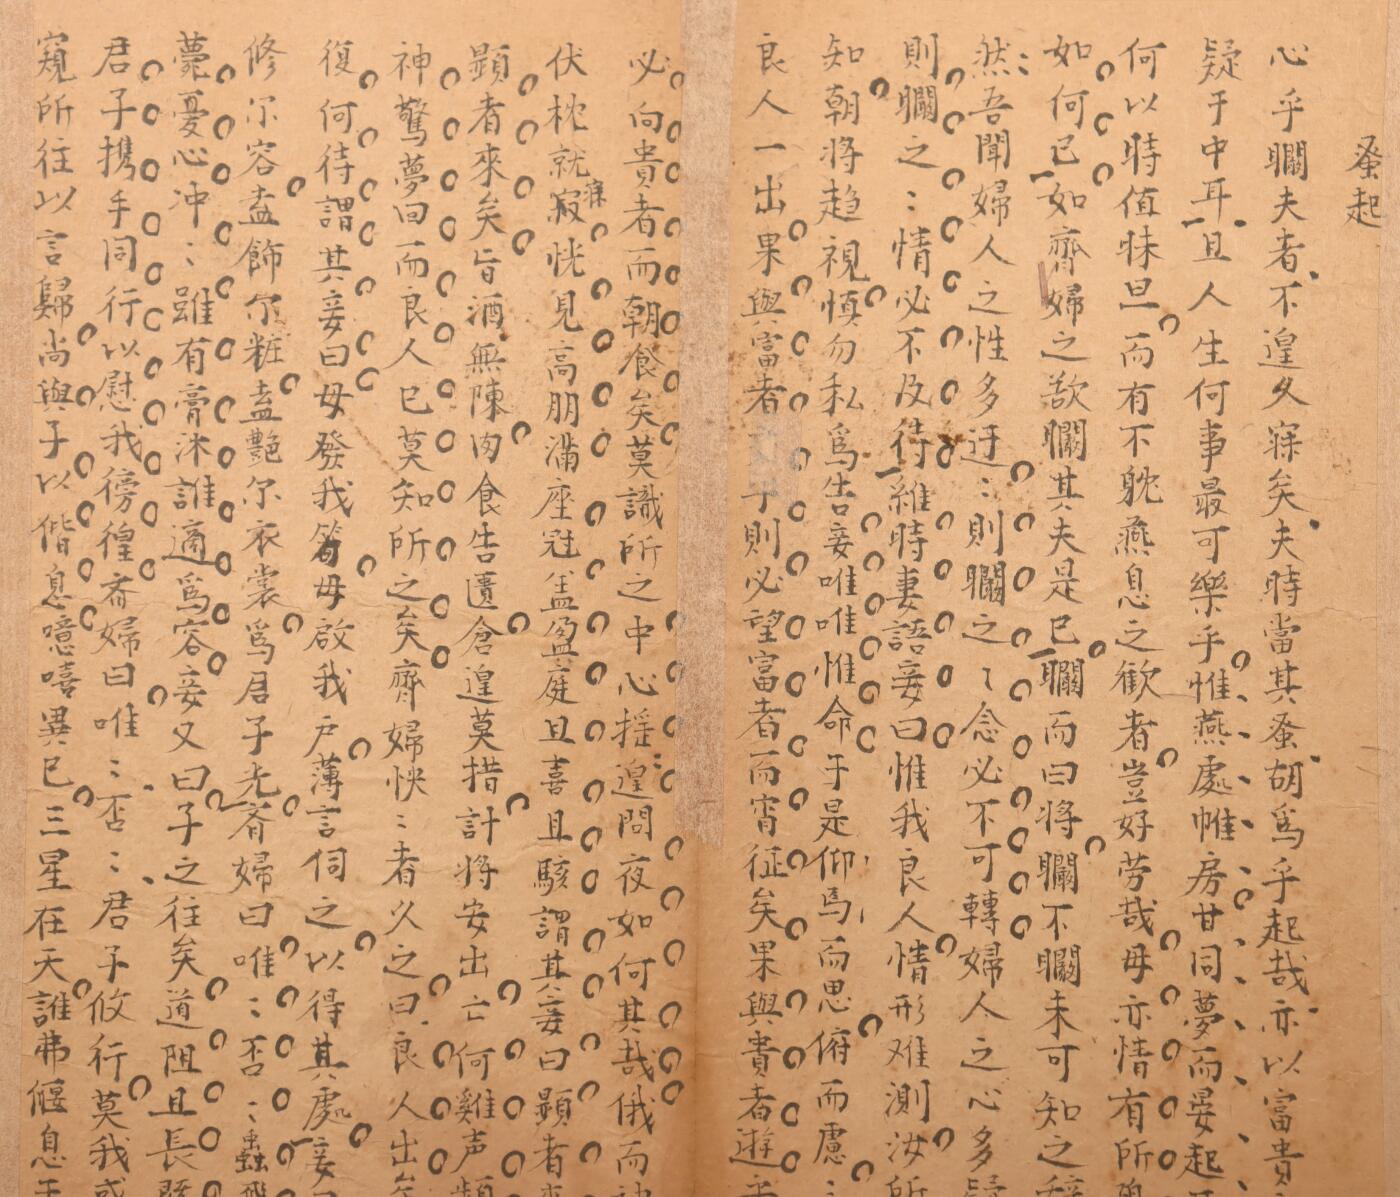 蚤起
心乎瞷夫者不遑久寐矣夫時當其蚤胡為乎起哉亦以富貴
疑于中耳且人生何事最可樂乎惟燕處帷房甘同夢而晏起
何以時值昧旦而有不躭燕息之歡者豈好劳哉毋亦情有所
如何已如齊婦之欲瞷其夫是已瞷而曰将瞷不瞷未可知之
然吾聞婦人之性多迂〻則瞷之〻念必不可轉婦人之心多疑
則瞷之〻情必不及待維時妻語妾曰惟我良人情形难測汝所
知朝将趋視慎勿私為告妾唯唯惟命于是仰焉而思俯而慮〻
良人一出果與富者 則必望富者而宵征矣果與貴者遊
必向貴者而朝食矣莫識所之中心揺遑問夜如何其哉俄而
伏枕就寢寐恍見高朋滿座冠盖盈庭且喜且駭謂其妾曰顕者來
顕者來矣旨酒無陳肉食告匱倉遑莫措計將安出亡何雞声頻
神驚夢回而良人已莫知所之矣齊婦怏〻者久之曰良人出矣
復何待謂其妾曰毋發我笱毋啟我戶薄言伺之以得其處妾曰
修尔容盍飾尔粧盍艷尔衣裳為君子光斉婦曰唯〻否〻蟲飛
薨憂心冲〻雖有膏沐誰適為容妾又曰子之往矣道阻且長
君子携手同行以慰我徬徨斉婦曰唯〻否〻君子攸行莫我或
窺所往以言歸尚與子以偕息噫嘻異已三星在天誰弗偃息